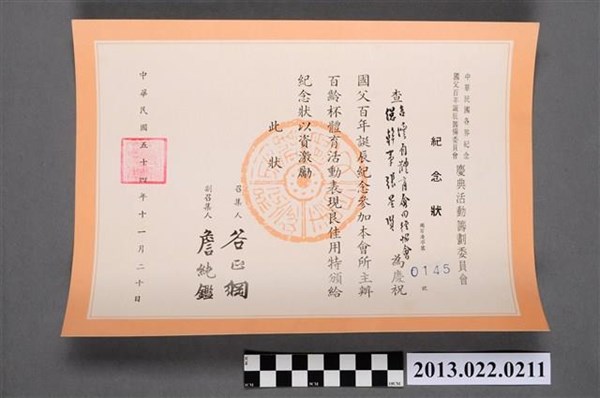 中華民國各界紀念
國父百年誕辰籌備委員會
慶典活動籌劃委員會
紀念狀
0145 號
查
為慶祝
國父百年誕辰紀念參加本會所主辦
百齡杯體育活動表現良佳用特頒給
紀念狀以資激勵
此狀
召集人 谷正綱
副召集人 詹純鑑
中華民國五十四年十一月二十日
2013.022.0211